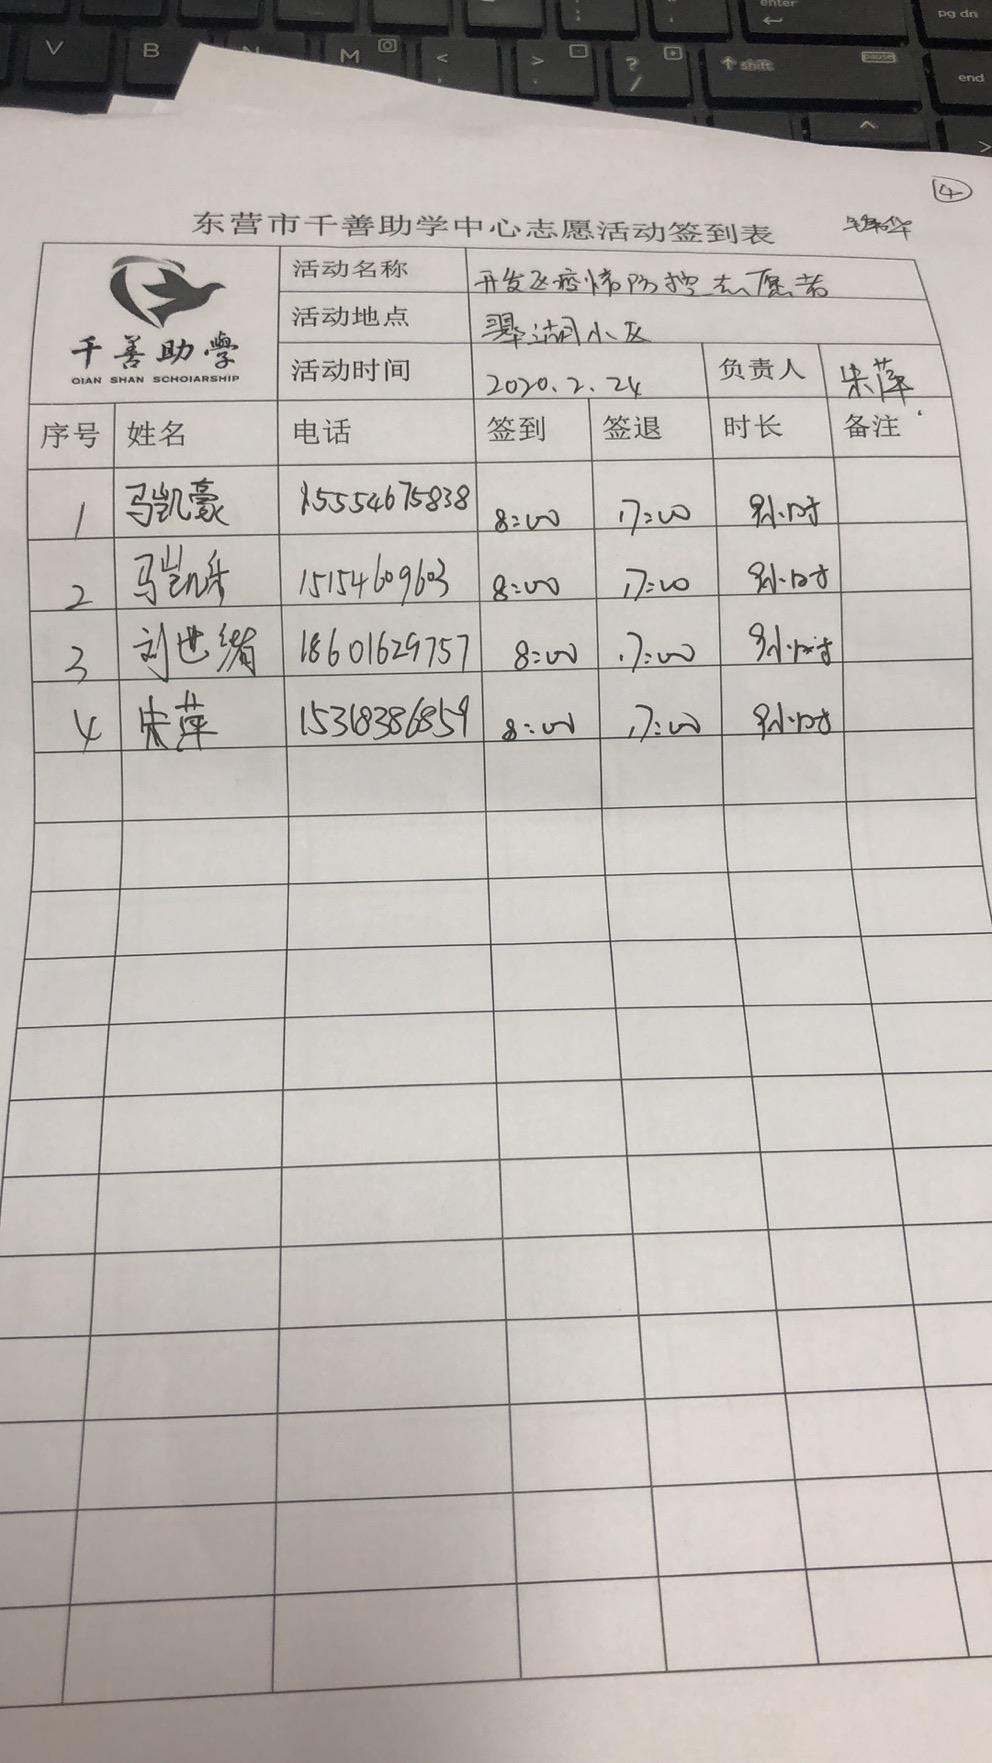 enter
pg dn
V
B
N
M
<
>
?
/
↑ shift
pause
end
④
东营市千善助学中心志愿活动签到表
千善助學
QIAN SHAN SCHOIARSHIP
活动名称 开发区疫情防控志愿者
活动地点 翠湖小区
活动时间 2020.2.24 负责人 朱萍
序号 姓名 电话 签到 签退 时长 备注
1 马凯豪 15554675838 8:00 17:00 9小时
2 马凯 15154609603 8:00 17:00 9小时
3 刘世绪 18601629757 8:00 17:00 9小时
4 朱萍 15318386859 8:00 17:00 9小时